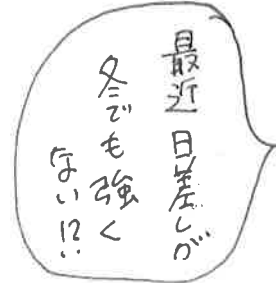 最近 日差しが
冬でも強く
ない!?